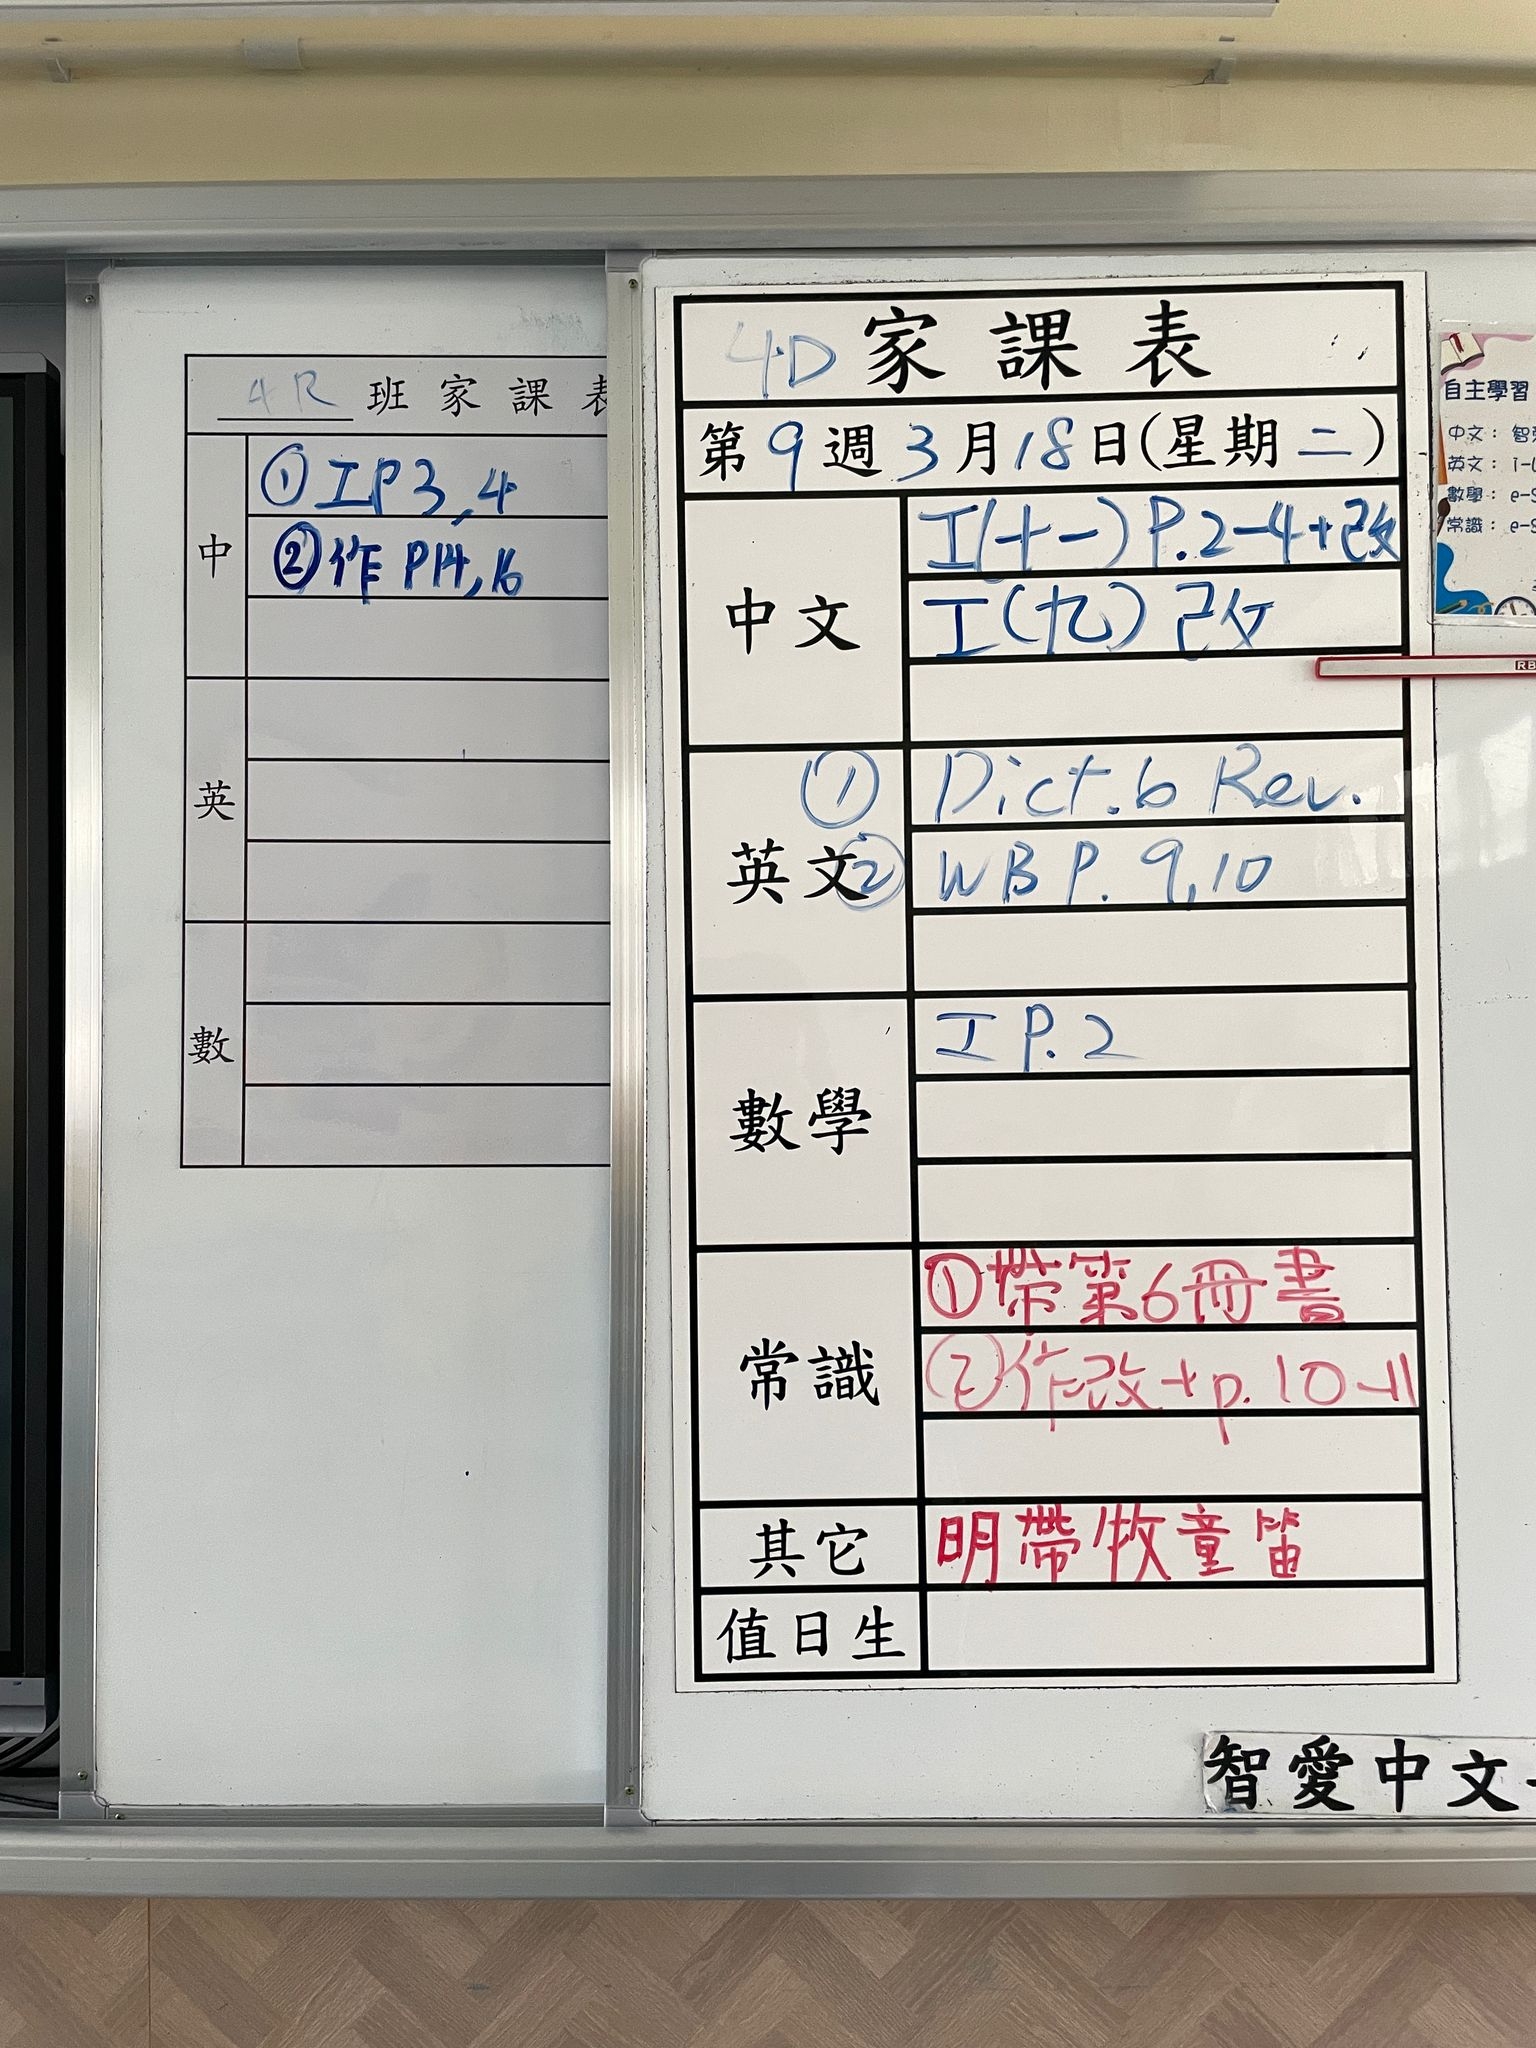 4R 班家課表
中
①工P3,4
②作 P14,16
英
數
4D 家課表
第9週3月18日(星期二)
中文
工(十一) P.2-4+改
工(九) 改
英文
① Dict.6 Rev.
② WB P. 9,10
數學
工 P.2
常識
①帶第6冊書
②作改+p.10-11
其它
明帶牧童笛
值日生
自主學習
中文：智
英文：i-
數學：e-S
常識：e-S
RB
智愛中文